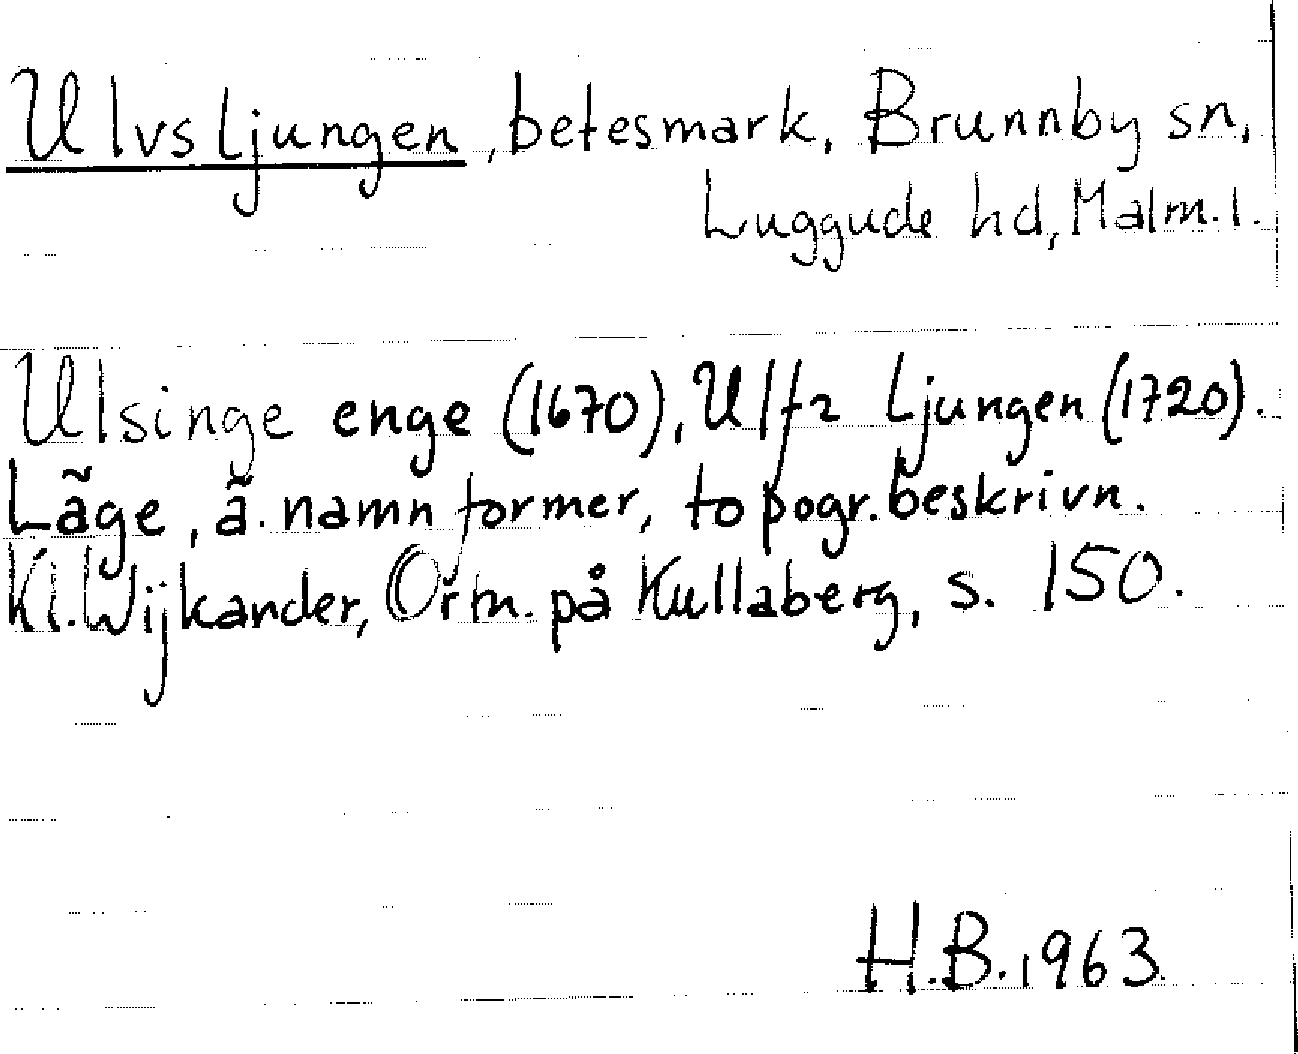 Ulvs Ljungen, betesmark, Brunnby sn,
Luggude hd, Malm. l.
Ulsinge enge (1670), Ulfz Ljungen (1720).
Läge, ä. namnformer, topogr. beskrivn.
Ki. Wijkander, Ortn. på Kullaberg, s. 150.
H.B. 1963.